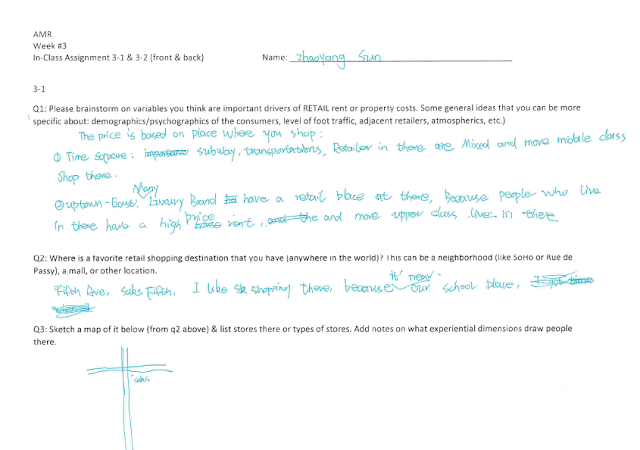 AMR
Week #3
In-Class Assignment 3-1 & 3-2 (front & back) Name: Zhaoyang Sun
3-1
Q1: Please brainstorm on variables you think are important drivers of RETAIL rent or property costs. Some general ideas that you can be more
specific about: demographics/psychographics of the consumers, level of foot traffic, adjacent retailers, atmospherics, etc.)
The price is based on place where you shop:
① Time Square: subway, transportations, Retailer in there are Mixed and more middle class
Shop there.
Many
② uptown-East: Luxury Brand have a retail place at there, Because people who live
price
In there have a high rent, and more upper class live in there
Q2: Where is a favorite retail shopping destination that you have (anywhere in the world)? This can be a neighborhood (like SoHo or Rue de
Passy), a mall, or other location.
it' near
Fifth Ave, Saks Fifth. I like shopping there, because our school place,
Q3: Sketch a map of it below (from q2 above) & list stores there or types of stores. Add notes on what experiential dimensions draw people
there.
saks